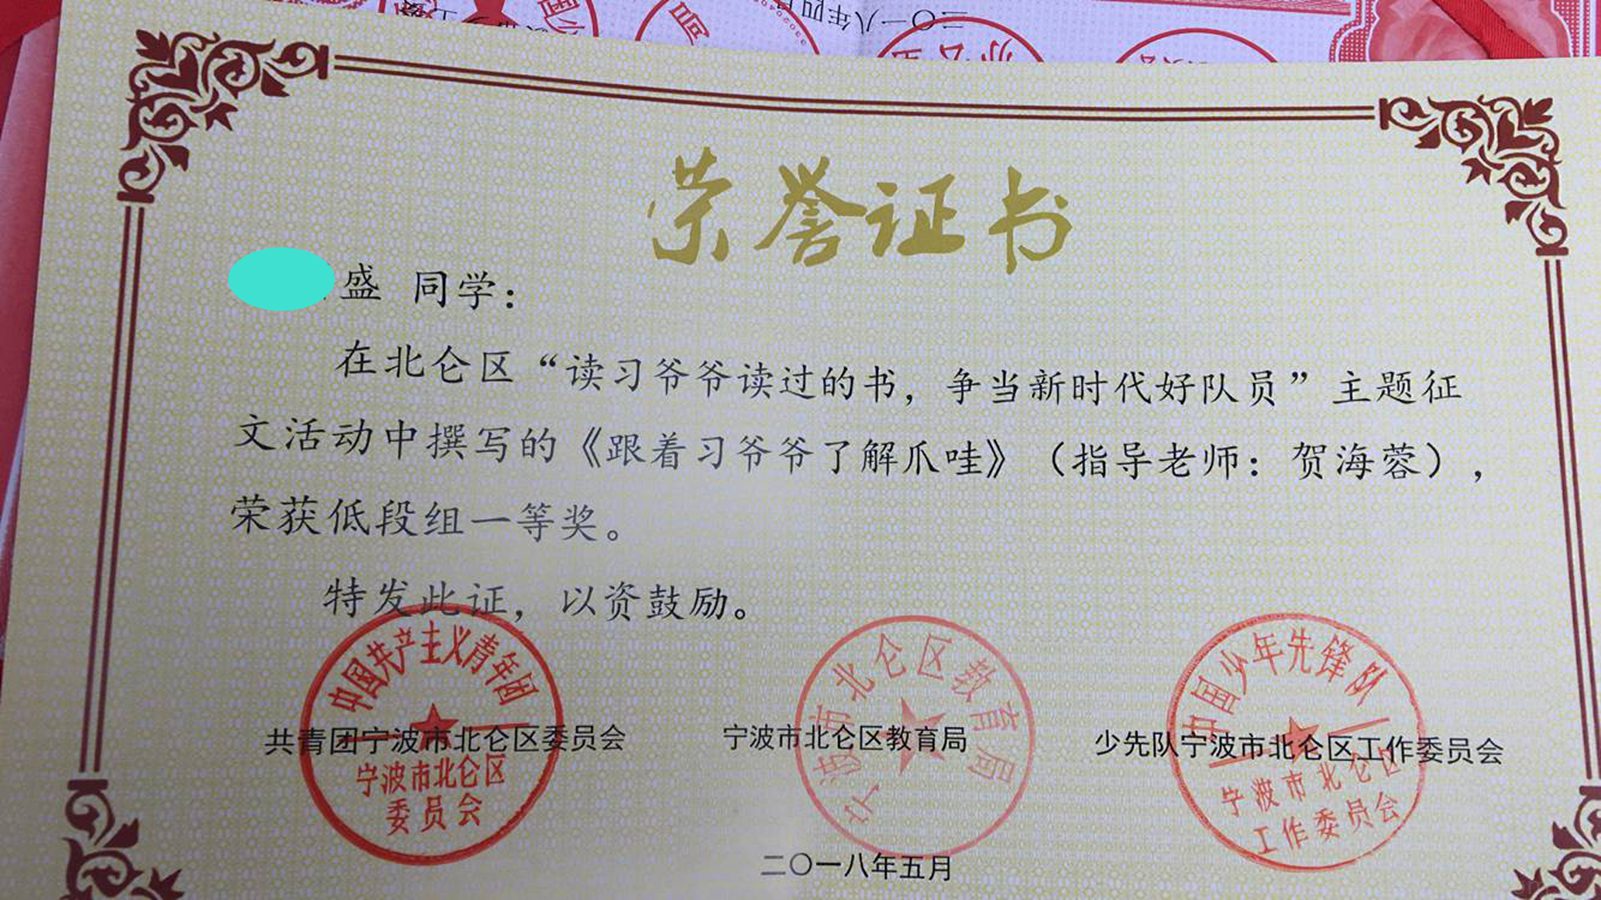 二〇一八年四月
荣誉证书
盛 同学：
在北仑区“读习爷爷读过的书，争当新时代好队员”主题征
文活动中撰写的《跟着习爷爷了解爪哇》（指导老师：贺海蓉），
荣获低段组一等奖。
特发此证，以资鼓励。
中国共产主义青年团
宁波市北仑区
委员会
共青团宁波市北仑区委员会
宁波市北仑区教育局
宁波市北仑区教育局
中国少年先锋队
宁波市北仑区
工作委员会
少先队宁波市北仑区工作委员会
二〇一八年五月